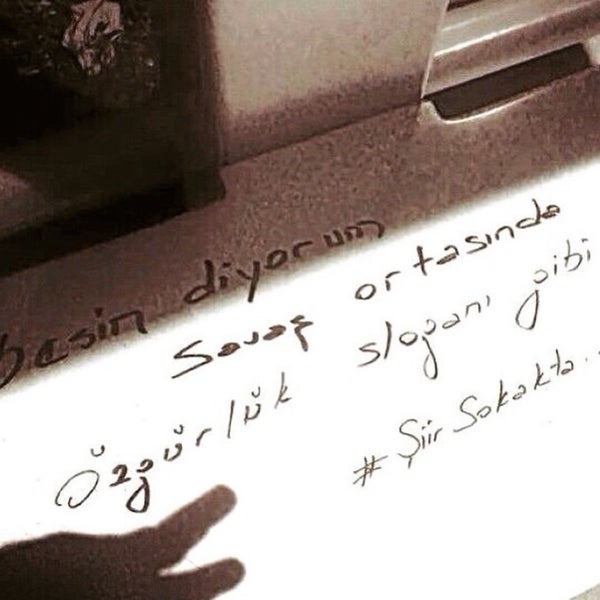 besin diyorum
Savaş ortasında
Özgürlük sloganı gibi
# Şiir Sokakta..